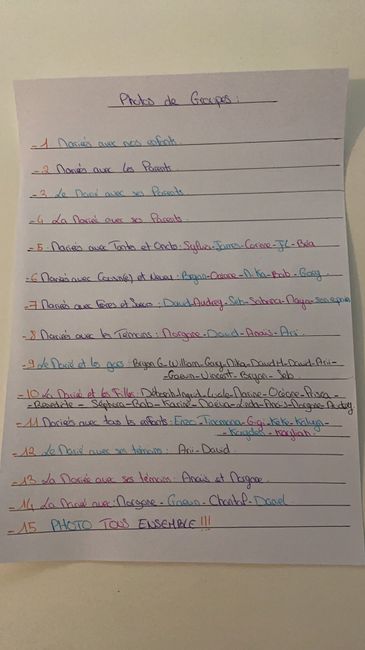 Photos de Groupes :
-1 Mariés avec nos enfants.
-2 Mariés avec les Parents.
-3 Le Marié avec ses Parents
-4 La Mariée avec ses Parents.
-5 Mariés avec Tantes et Oncles : Sylvia-James-Corinne-JL-Béa
-6 Mariés avec Cousin(e) et Neveu : Bryan-Océane-Mika-Bab-Gary
-7 Mariés avec Frères et Soeurs : David-Audrey-Seb-Sabrina-Maya-
-8 Mariés avec les Témoins : Morgane-David-Anaïs-Ari.
-9 Le Marié et les gas : Bryan G-William-Gary-Mika-David H-David-Ari-
-Goeun-Vincent-Bryan-Seb
-10 La Mariée et les Filles : Ingrid-Lucile-Marine-Océane-
-Séphora-Bab-Karine-Maeva-Linda-Anaïs-Morgane-Audrey
-11 Mariés avec tous les enfants : Enzo--Gigi-Keke-
-Kayden-Kaylah.
-12 Le Marié avec ses témoins : Ari-David
-13 La Mariée avec ses témoins : Anaïs et Morgane
-14 La Mariée avec Morgane-Goeun-Chantal-Daniel
-15 PHOTO TOUS ENSEMBLE !!!